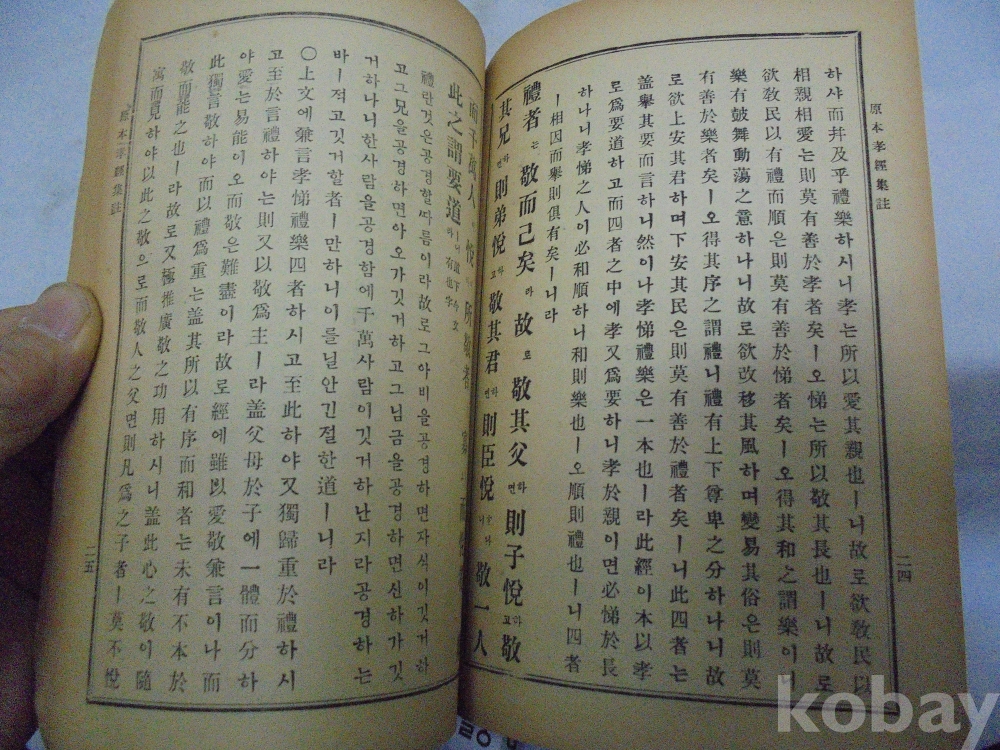 原本孝經集註 二四
하샤而幷及乎禮樂하시니孝는所以愛其親也ㅣ니故로欲敎民以
相親相愛는則莫有善於孝者矣ㅣ오悌는所以敬其長也ㅣ니故로
欲敎民以有禮而順은則莫有善於悌者矣ㅣ오得其和之謂樂이니
樂有鼓舞動蕩之意하나니故로欲改移其風하며變易其俗은則莫
有善於樂者ㅣ오得其序之謂禮ㅣ니禮有上下尊卑之分하나니故
로欲上安其君하며下安其民은則莫有善於禮者矣ㅣ니此四者는
盖擧其要而言하니然이나孝悌禮樂은一本也ㅣ라此經이本以孝
로爲要道하고而四者之中에孝又爲要하니孝於親이면必悌於長
하나니孝悌之人이必和順하니和則樂也ㅣ오順則禮也ㅣ니四者
ㅣ相因而擧則俱有矣ㅣ니라
禮者는敬而已矣라故로敬其父하면則子悅하고敬
其兄하면則弟悅하고敬其君하면則臣悅하나니敬一人
而千萬人이悅 所敬者 寡 而悅
此之謂要道ㅣ
禮란것은공경할따름이라故로그아비을공경하면자식이깃거하
고그兄을공경하면아오가깃거하고그님금을공경하면신하가깃
거하나니한사람을공경함에千萬사람이깃거하난지라공경하는
바ㅣ적고깃거할者ㅣ만하니이를닐안긴절한道ㅣ니라
○上文에兼言孝悌禮樂四者하시고至此하야又獨歸重於禮하시
고至於言禮하야는則又以敬爲主ㅣ라盖父母於子에一體而分하
야愛는易能이오而敬은難盡이라故로經에雖以愛敬兼言이나而
此獨言敬하야而以禮爲重는盖其所以有序而和者는未有不本於
敬而能之也ㅣ라故로又極推廣敬之功用하시니盖此心之敬이隨
寓而見하야以此之敬으로而敬人之父면則凡爲之子者ㅣ莫不悅
原本孝經集註 二五
kobay